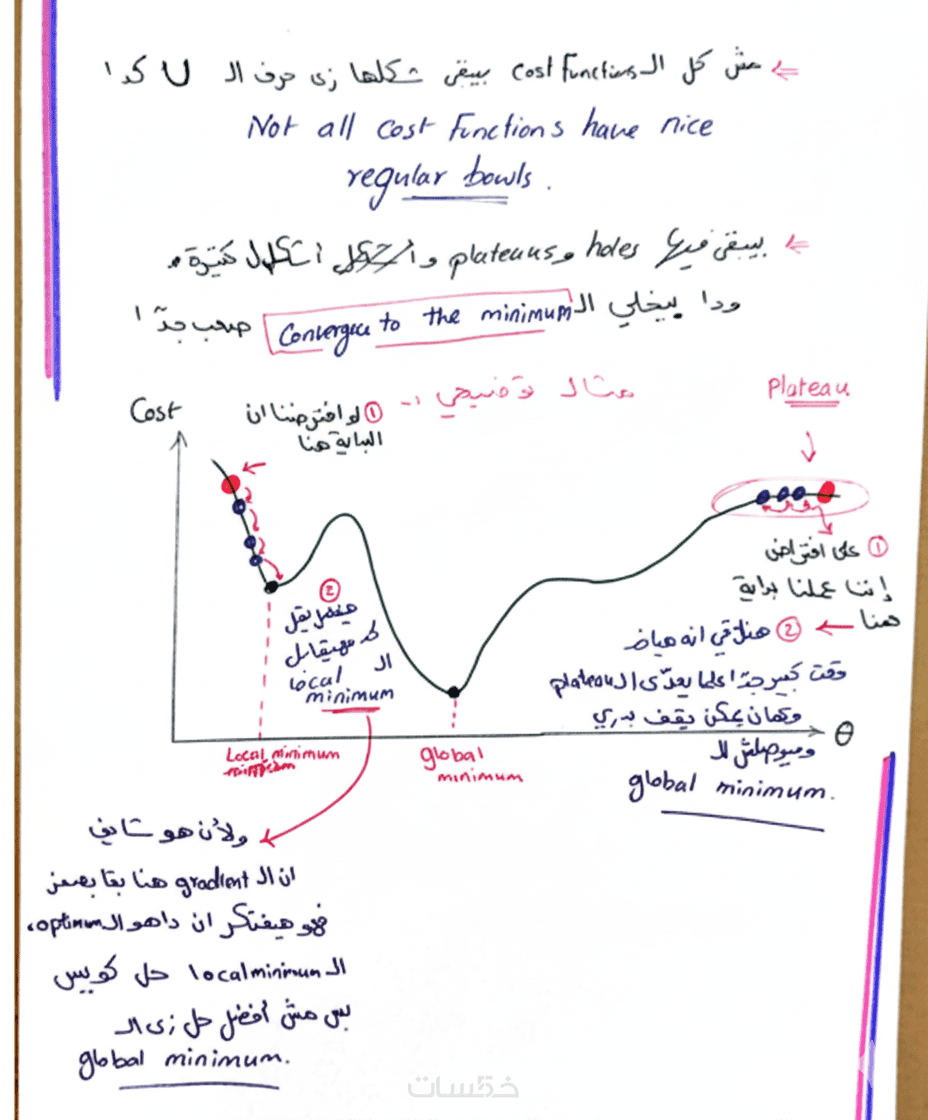 مش كل الـ Cost Functions بيبقى شكلها زى حرف الـ U كدا
Not all cost Functions have nice
regular bowls.
بيبقى فيها holes و plateaus و أشكال كتيرة.
ودا بيخلي الـ Convergce to the minimum صعب جدًا
مثال توضيحي :-
Plateau
Cost
① لو افترضنا ان
الباية هنا
② هيفضل يقل
لحد مهيقابل
الـ
local
minimum
① على افتراض
إننا عملنا بداية
هنا
② هنلاقي انه هياخد
وقت كبير جدًا علما يعدّى الـ plateau
وكمان ممكن يقف بدري
وميوصلش للـ
global minimum.
θ
Local minimum
global
minimum
ولأن هو شايف
ان الـ gradient هنا بقا بصفر
فهو هيفتكر ان دا هو الـ optimum،
الـ local minimum حل كويس
بس مش أفضل حل زى الـ
global minimum.
خمسات